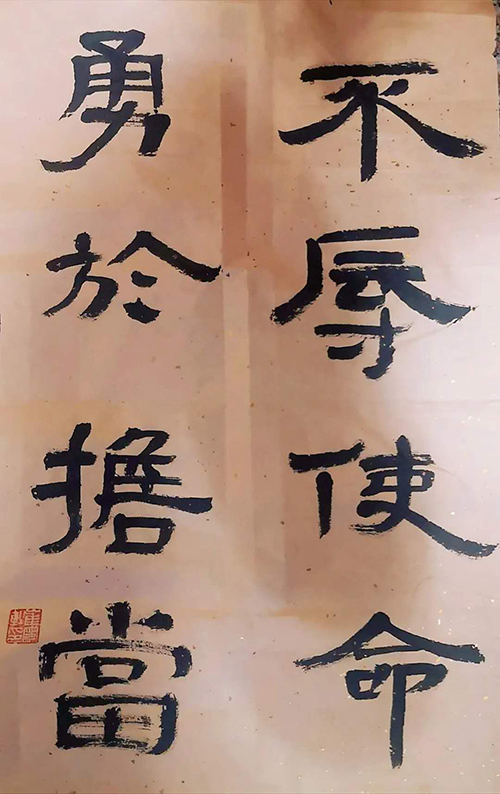 不辱使命
勇於擔當